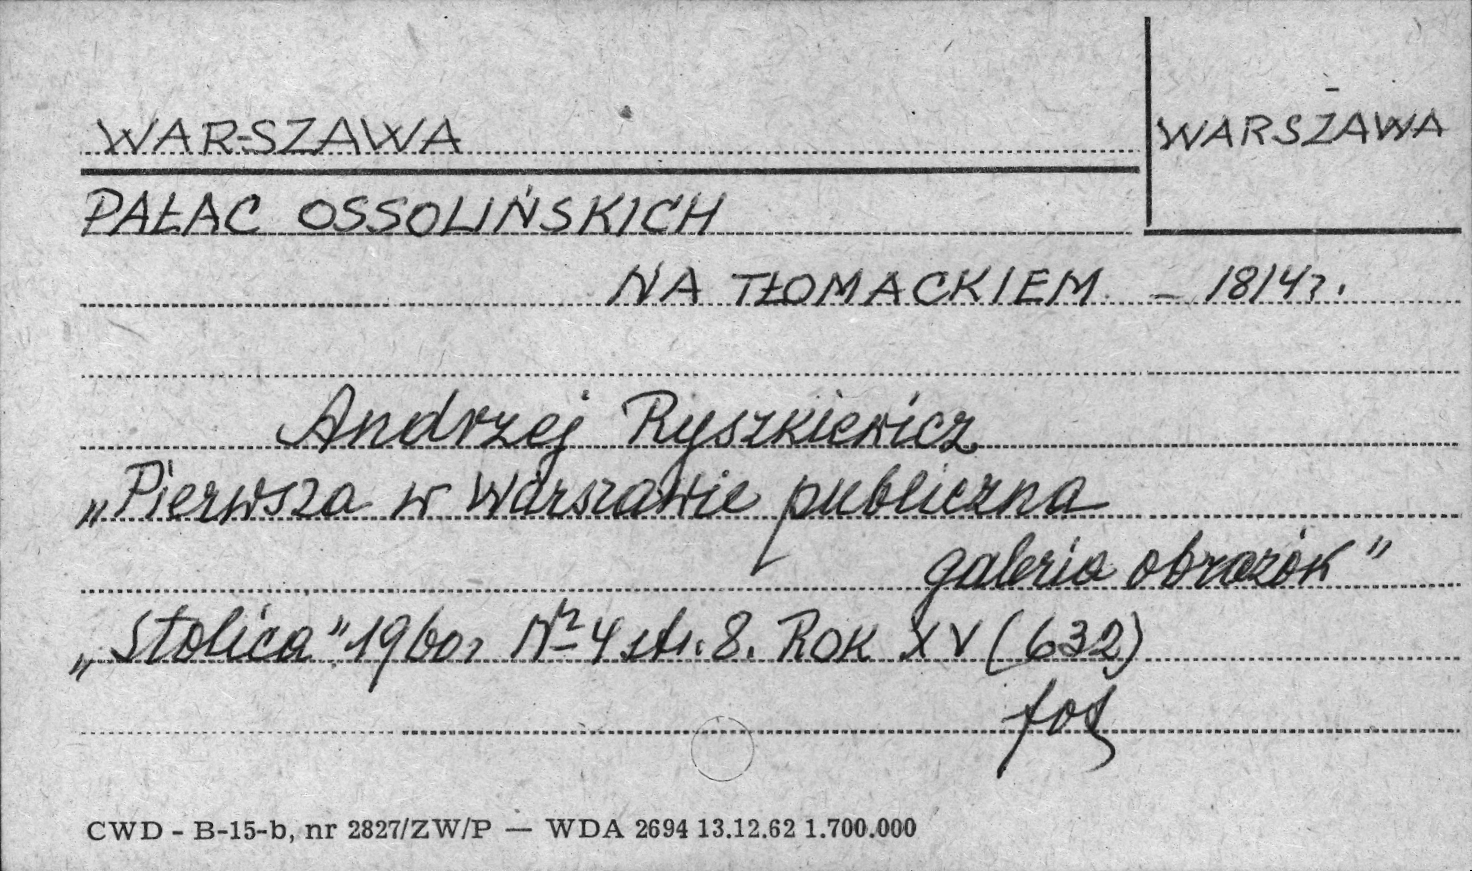 WARSZAWA
WARSZAWA
PAŁAC OSSOLIŃSKICH
NA TŁOMACKIEM – 1814 r.
Andrzej Ryszkiewicz
„Pierwsza w Warszawie publiczna
galeria obrazów”
„Stolica” 1960 r Nr 4 str. 8. Rok XV (632)
fot
CWD - B-15-b, nr 2827/ZW/P — WDA 2694 13.12.62 1.700.000